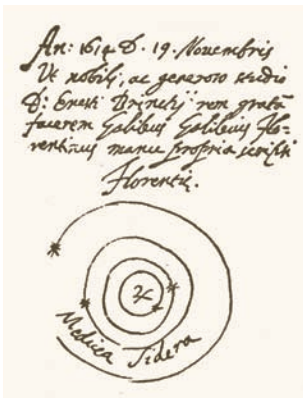 An: 1614 D. 19. Nouembris
Vt nobili, ac generoso studio
D: Ernesti Brinckij rem gratā
facerem Galileus Galileius Flo-
rentinus manu propria scripsi
Florentie.
Medicea Sidera